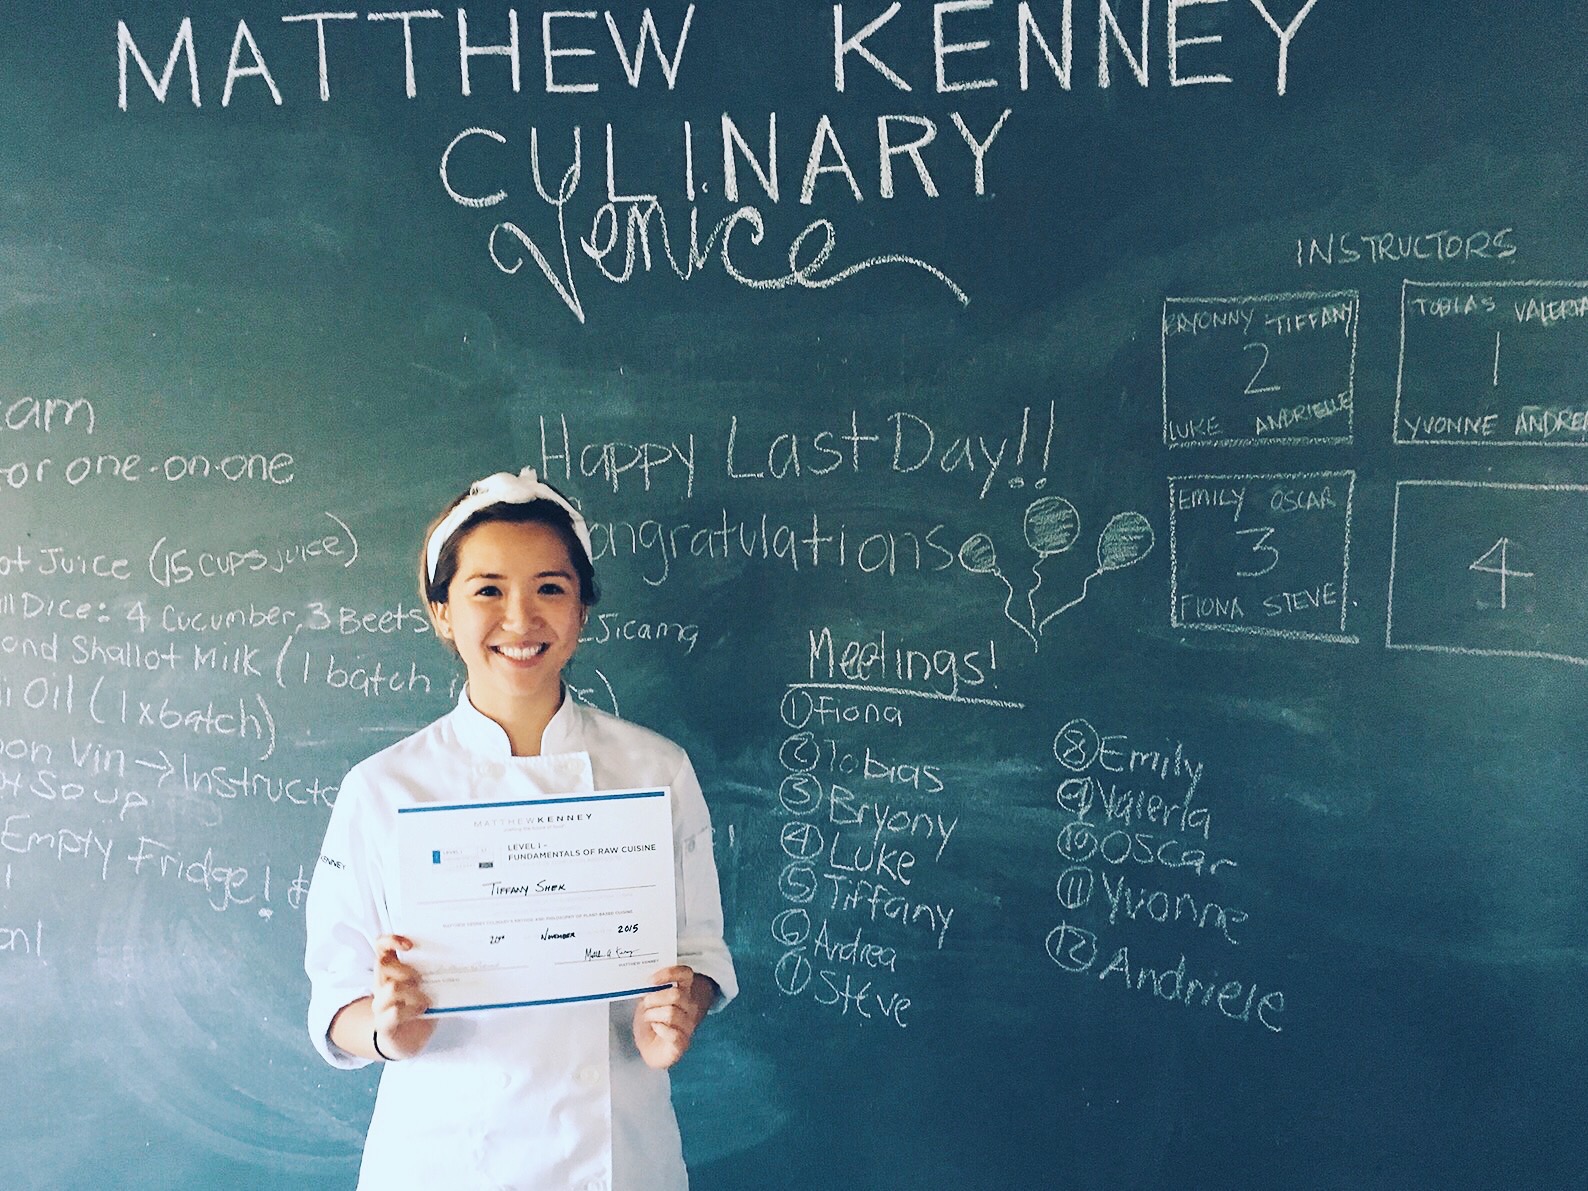 MATTHEW KENNEY
CULINARY
Venice
INSTRUCTORS
BRYONNY TIFFANY
2
LUKE ANDRIELLE
TOBIAS VALERIA
1
YVONNE ANDREA
EMILY OSCAR
3
FIONA STEVE
4
Happy Last Day!!
ongratulations
or one-on-one
ot Juice (15 cups juice)
Dice: 4 Cucumber, 3 Beets
Jicama
ond Shallot Milk (1 batch
Oil (1x batch)
on Vin → Instructo
Soup
Empty Fridge!
Meetings!
① Fiona
② Tobias
③ Bryony
④ Luke
⑤ Tiffany
⑥ Andrea
⑦ Steve
⑧ Emily
⑨ Valeria
⑩ Oscar
⑪ Yvonne
⑫ Andriele
KENNEY
MATTHEWKENNEY
LEVEL I -
FUNDAMENTALS OF RAW CUISINE
TIFFANY SHEK
20th NOVEMBER 2015
MATTHEW KENNEY